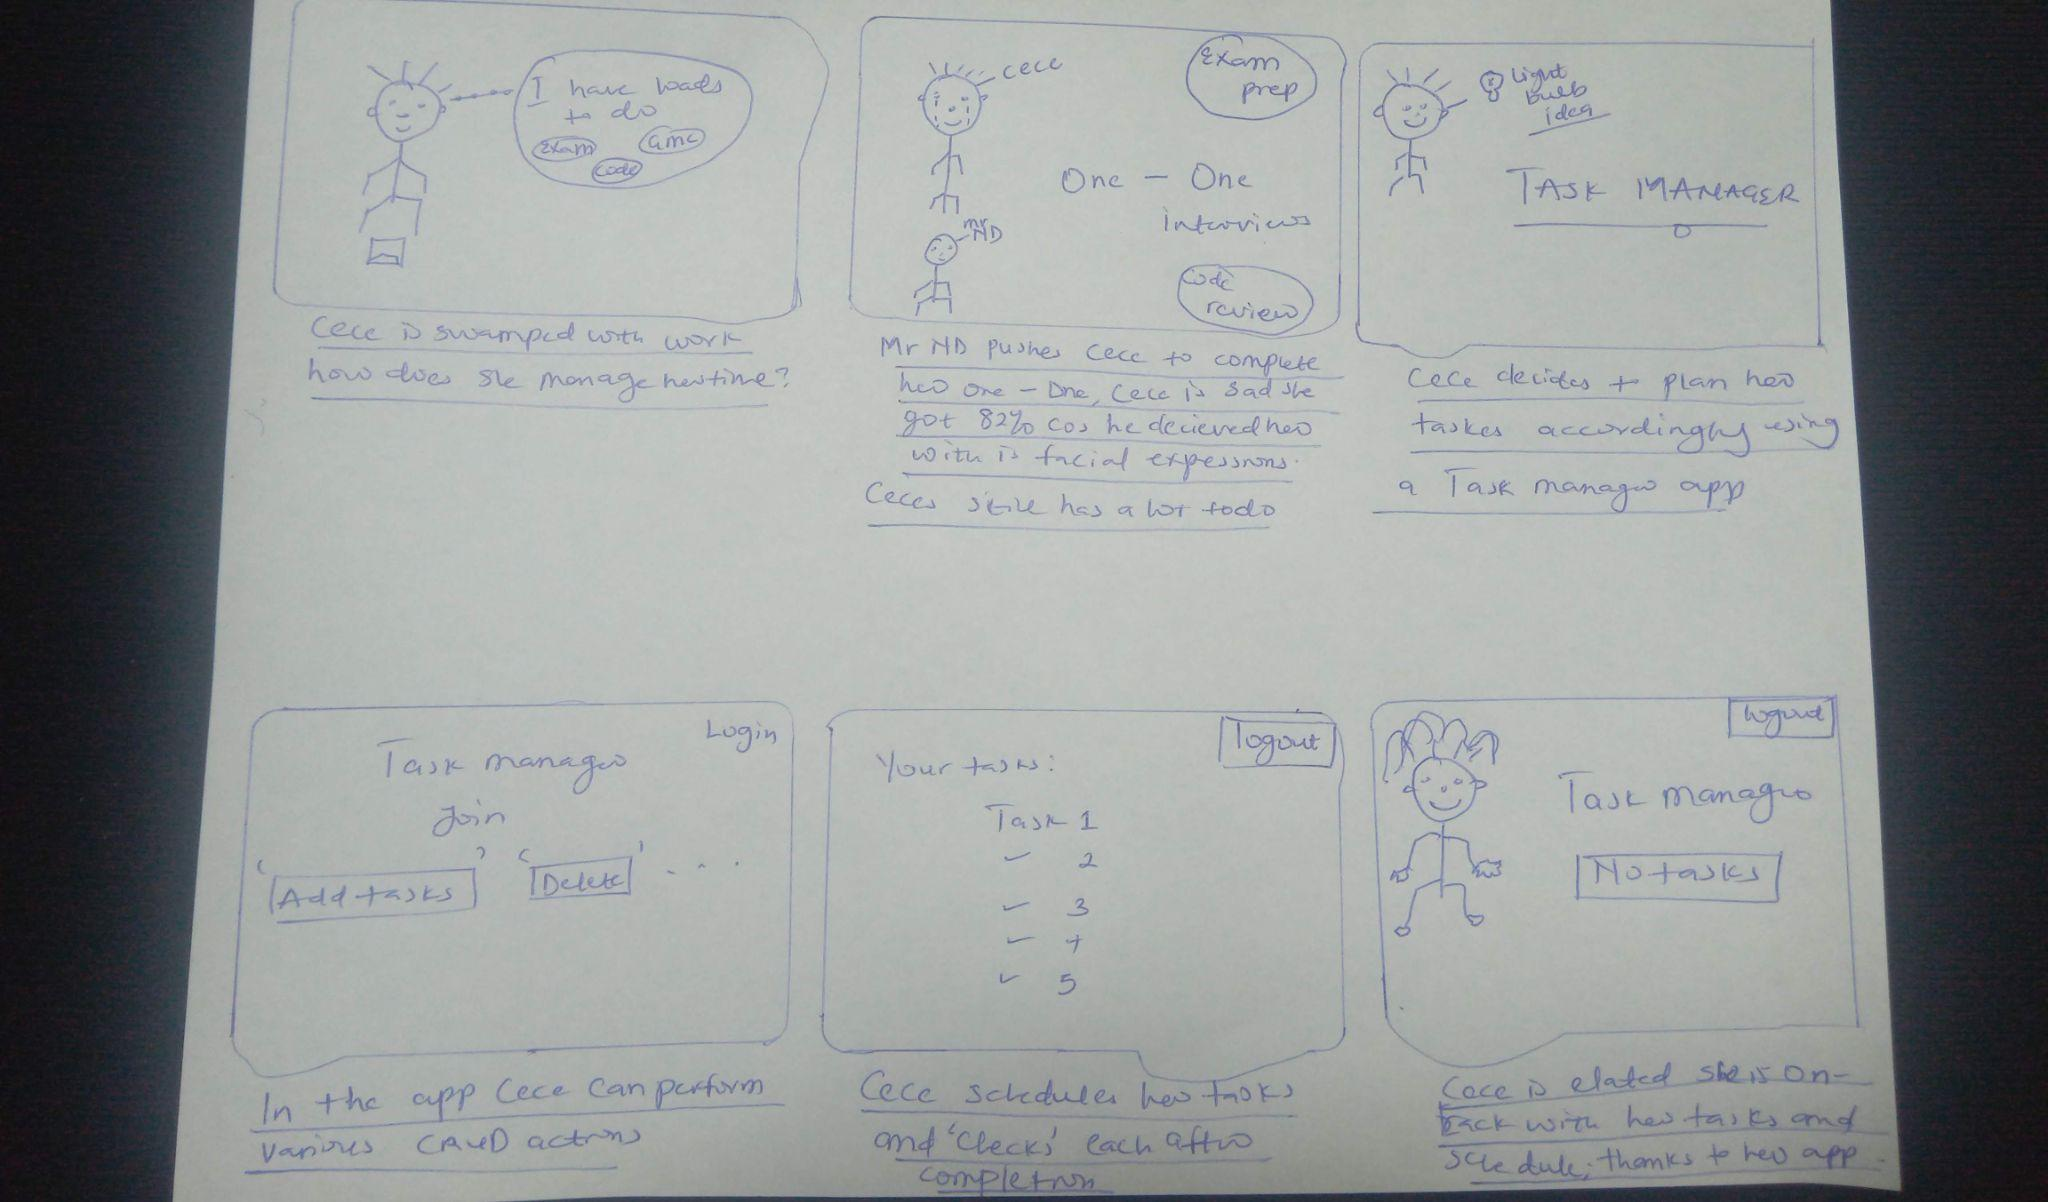 I have loads
to do
exam
GMC
code
Cece is swamped with work
how does she manage her time?
cece
Exam
prep
One - One
interviews
mr
ND
code
review
Mr ND pushes Cece to complete
her one - One, Cece is sad she
got 82% cos he decieved her
with is facial expessions.
Ceces still has a lot todo
Light
bulb
idea
TASK MANAGER
Cece decides to plan her
taskes accordingly using
a Task manager app
Login
Task manager
Join
'Add tasks' 'Delete' ...
In the app Cece can perform
various CRUD actions
logout
Your tasks:
Task 1
✓ 2
✓ 3
✓ 4
✓ 5
Cece schedules her tasks
and 'Checks' each after
completion
logout
Task manager
No tasks
Cece is elated she is on-
track with her tasks and
schedule; thanks to her app.